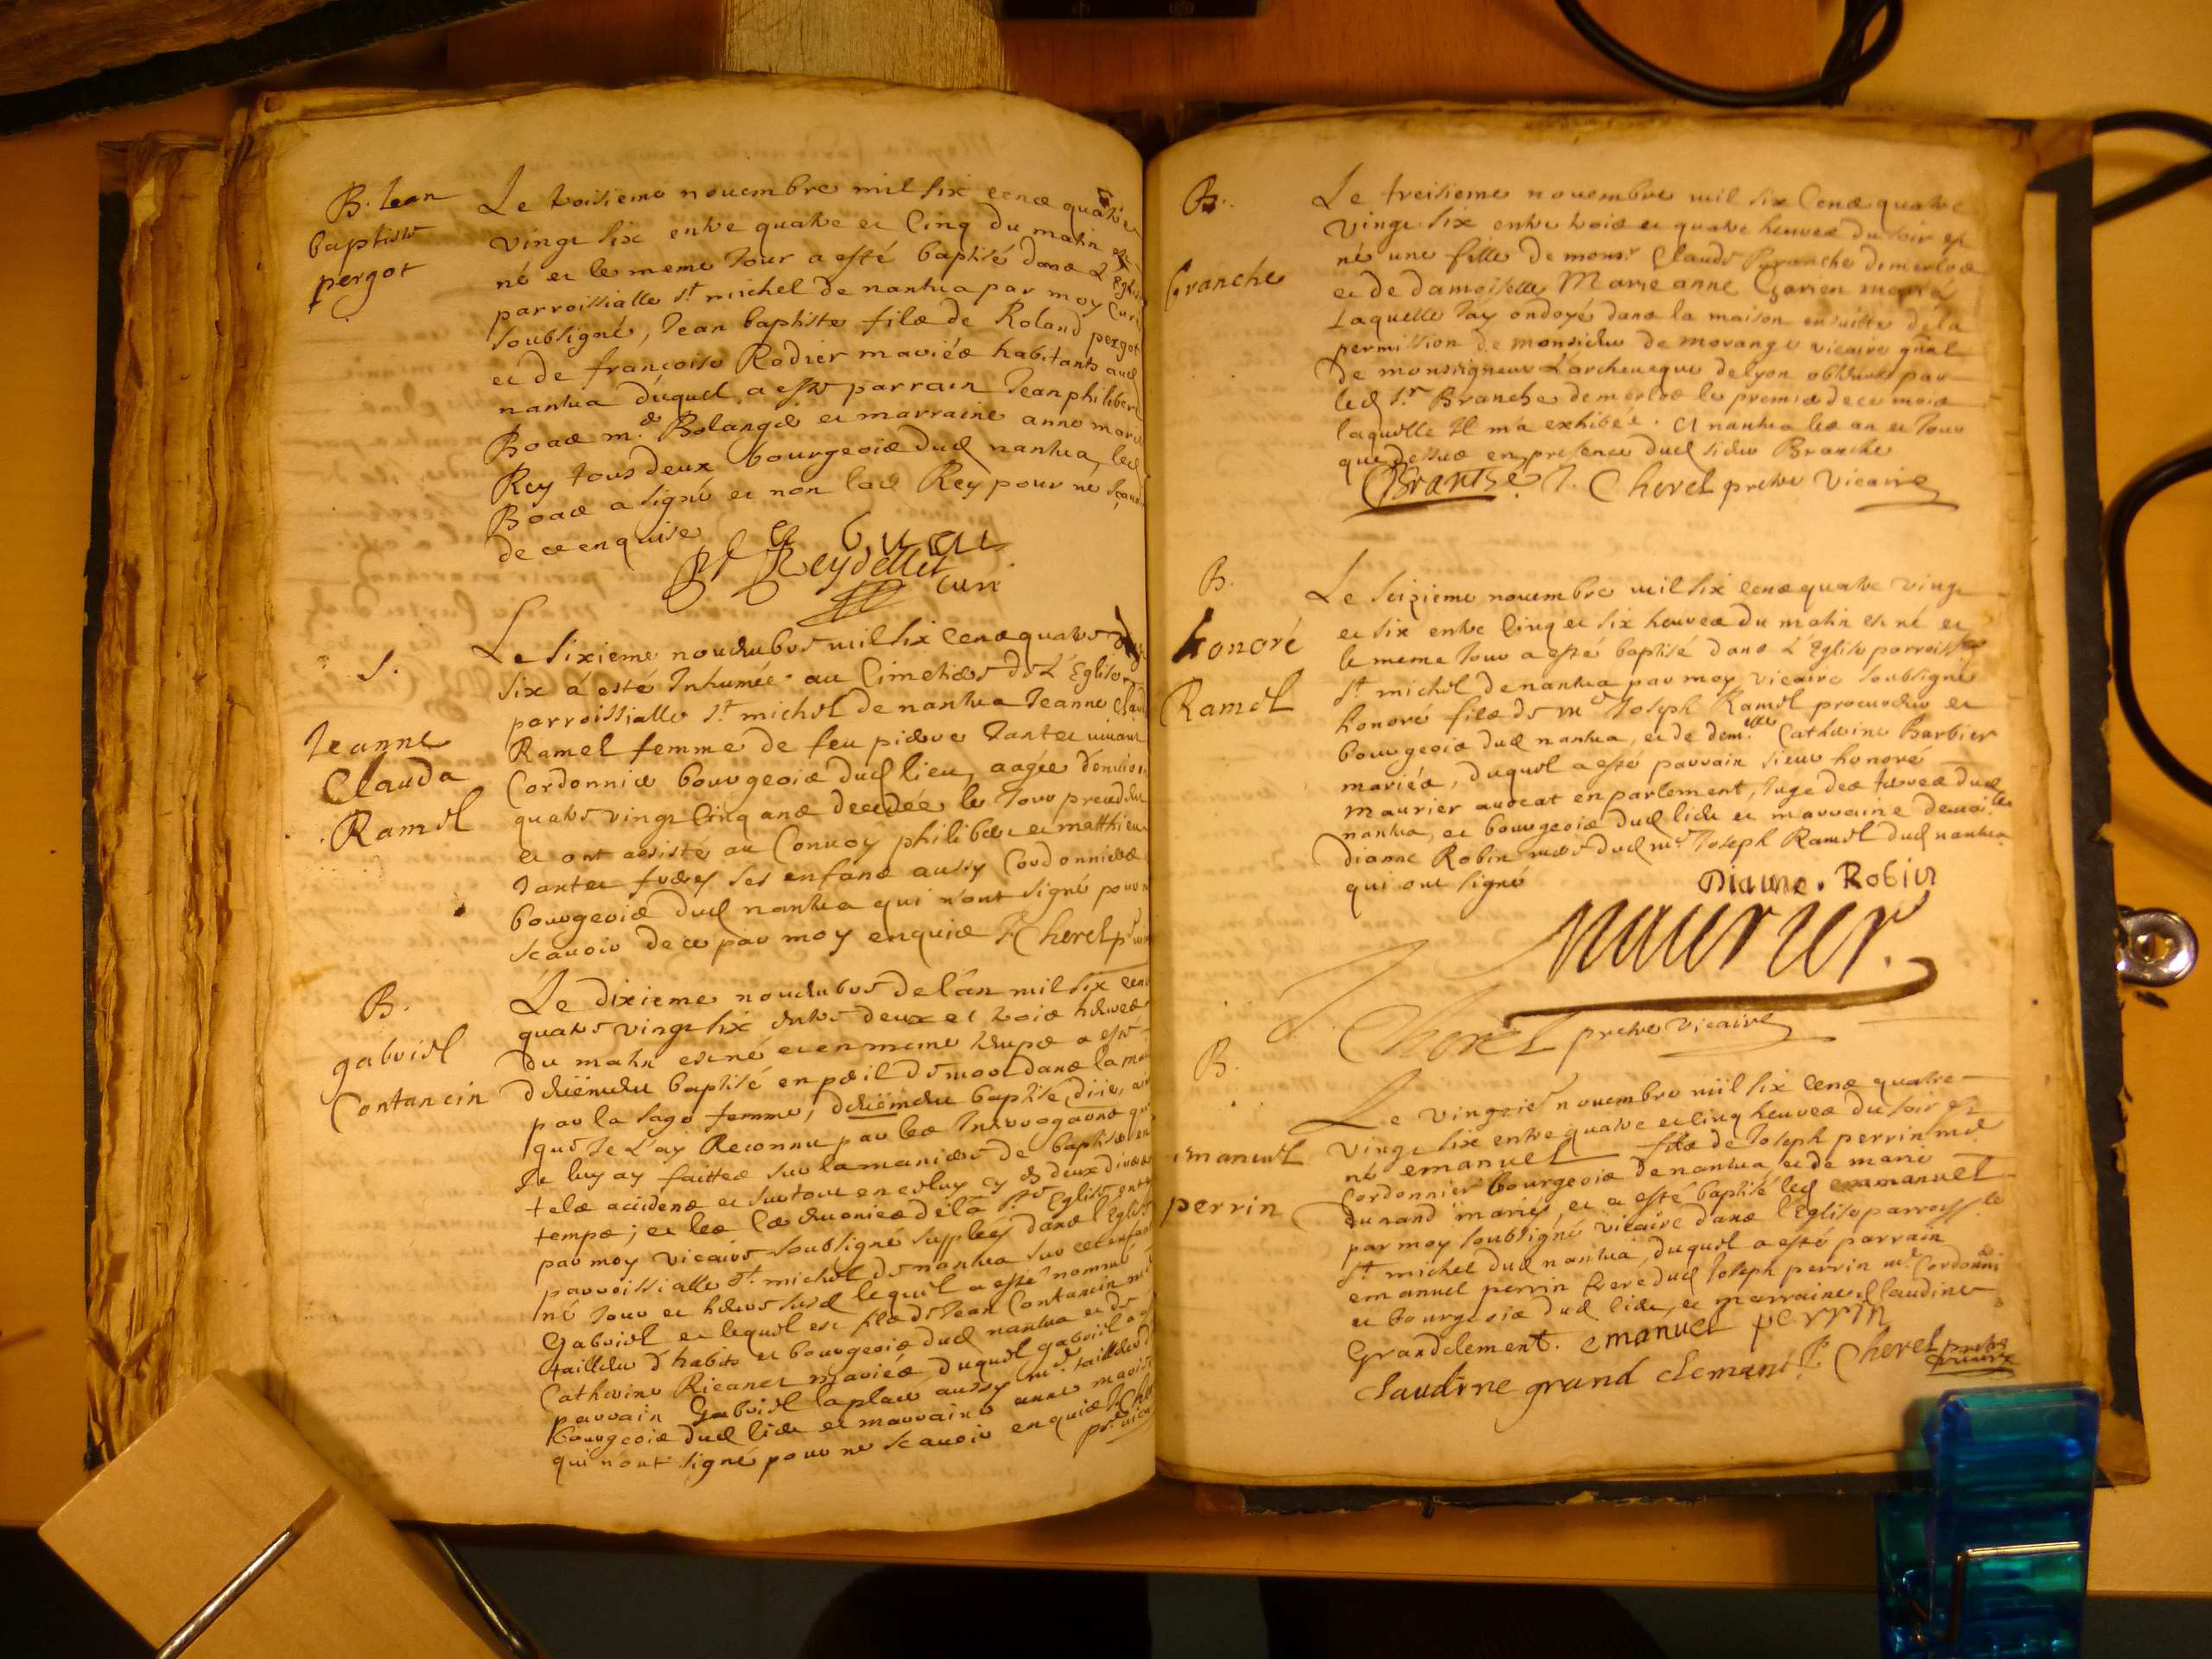 B. Jean
baptiste
pergot
Le troisieme novembre mil six cens quatre
vingt six entre quatre et cinq du matin est
né et le meme jour a esté baptisé dans l'Eglise
parroissialle st michel de nantua par moy Curé
soubsigné, Jean baptiste fils de Roland pergot
et de françoise Rodier mariés habitants aud
nantua duquel a esté parrain Jean philibert
Boacs md Bolanger et marraine anne marie
Rey tous deux bourgeois dud nantua, led
Boacs a signé et non lad Rey pour ne scavoir
de ce enquise
Reydellet curé
S.
Jeanne
Clauda
Ramel
Le sixieme novembre mil six cens quatre vingt
six a esté Inhumée au Cimetiere de L'Eglise
parroissialle st michel de nantua Jeanne Clauda
Ramel femme de feu pierre Jantet vivant
Cordonnier bourgeois dud lieu, aagée d'environ
quatre vingt cinq ans decedée le jour precedent
et ont assisté au Convoy philibert et matthieu
Jantet freres ses enfans aussy Cordonniers
bourgeois dud nantua qui n'ont signé pour ne
scavoir de ce par moy enquis Cherel
B.
gabriel
Contancin
Le dixieme novembre de l'an mil six cens
quatre vingt six entre deux et trois heures
du matin est né et en meme temps a esté
deüement baptisé en peril de mort dans la maison
par la sage femme, deüement baptisé dis je, ainsi
que Je L'ay Reconnu par les Interrogations que
Je luy ay faittes sur la maniere de baptiser en
tels accidens et surtout en celuy cy de deux divers
temps; et les Ceremonies de la ste Eglise ont esté
par moy vicaire soubsigné supplees dans l'Eglise
parroissialle st. michel de nantua sur cet enfant
né jour et heure susd lequel a esté nommé
Gabriel et lequel est fils de Jean Contancin md
tailleur d'habits et bourgeois dud nantua et de
Catherine Ricanet mariés, duquel gabriel a esté
parrain Gabriel laplace aussy md tailleur
bourgeois dud lieu et marraine anne marie
qui n'ont signé pour ne scavoir enquis Cherel
pr. vicaire
B.
branche
Le treisieme novembre mil six Cens quatre
vingt six entre trois et quatre heures du soir est
né une fille de monsr Claude Branche demerloz
et de damoiselle Marie anne mariés
Laquelle J'ay ondoyé dans la maison ensuitte de la
permission de monsieur de morange vicaire gnal
de monseigneur L'archeveque de lyon obtenue par
led sr Branche demerloz le premier de ce mois
laquelle Il m'a exhibée. A nantua les an et jour
que dessus en presence dud sieur Branche
Brantse. Cherel pretre vicaire
B.
honoré
Ramel
Le seizieme novembre mil six cens quatre vingt
et six entre cinq et six heures du matin est né et
le meme jour a esté baptisé dans L'Eglise parroisse
st michel de nantua par moy vicaire soubsigné
honoré fils de me Joseph Ramel procureur et
bourgeois dud nantua, et de demelle Catherine Barbier
mariés, duquel a esté parrain sieur honoré
maurier avocat en parlement, Juge des terres dud
nantua, et bourgeois dud lieu et marraine demoille
dianne Robin mere dud me Joseph Ramel dud nantua
qui ont signé
Dianne. Robin
maurier.
J. Cherel pretre vicaire
B.
emanuel
perrin
Le vingtiee novembre mil six cens quatre
vingt six entre quatre et cinq heures du soir est
né emanuel fils de Joseph perrin md
Cordonnier bourgeois de nantua, et de marie
durand mariés, et a esté baptisé led emmanuel
par moy soubsigné vicaire dans l'Eglise parroissle
st michel dud nantua, duquel a esté parrain
emanuel perrin frere dud Joseph perrin md Cordonnier
et bourgeois dud lieu, et marraine Claudine
Grandclement. emanuel perrin
claudine grand clemant Cherel pretre
vicaire